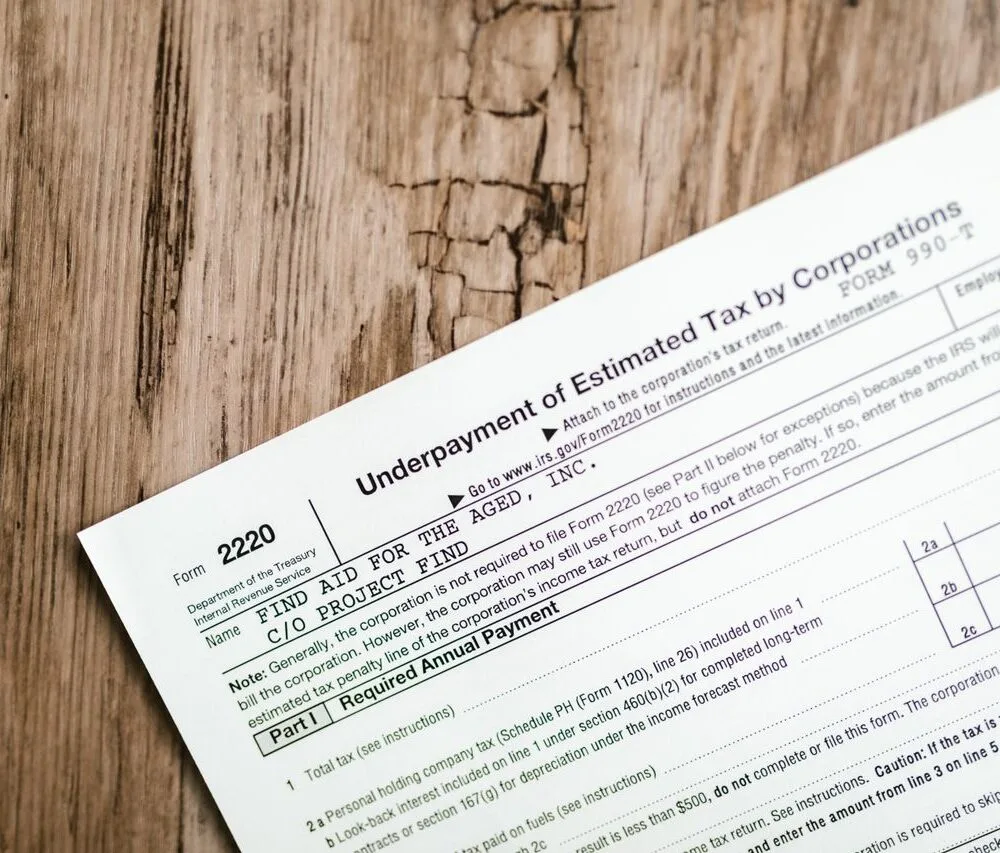 Underpayment of Estimated Tax by Corporations
FORM 990-T
Form 2220
Department of the Treasury
Internal Revenue Service
▶ Attach to the corporation's tax return.
▶ Go to www.irs.gov/Form2220 for instructions and the latest information.
Name
FIND AID FOR THE AGED, INC.
C/O PROJECT FIND
Note: Generally, the corporation is not required to file Form 2220 (see Part II below for exceptions) because the IRS will
bill the corporation. However, the corporation may still use Form 2220 to figure the penalty. If so, enter the amount
estimated tax penalty line of the corporation's income tax return, but do not attach Form 2220.
Part I Required Annual Payment
1 Total tax (see instructions)
2 a Personal holding company tax (Schedule PH (Form 1120), line 26) included on line 1
2a
b Look-back interest included on line 1 under section 460(b)(2) for completed long-term
or section 167(g) for depreciation under the income forecast method
2b
tax paid on fuels (see instructions)
2c
2c
result is less than $500, do not complete or file this form. The corporation
tax return. See instructions. Caution: If the tax is
and enter the amount from line 3 on line 5
is required to skip